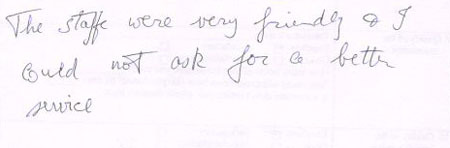 The staffe were very friendly & I
could not ask for a better
service